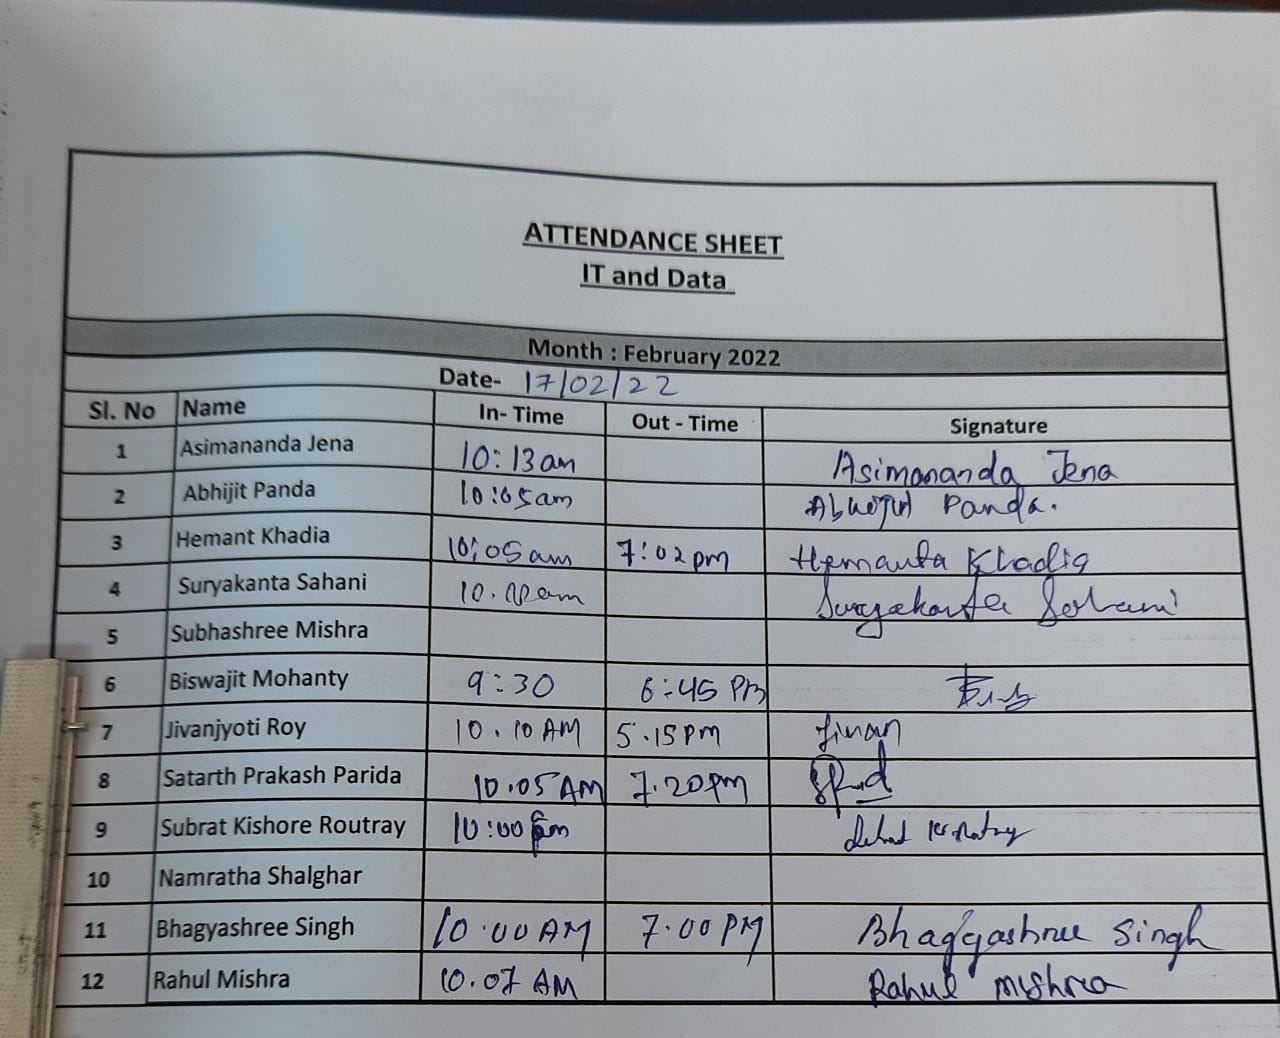 ATTENDANCE SHEET
IT and Data
Month : February 2022
Date- 17/02/22
Sl. No Name In- Time Out - Time Signature
1 Asimananda Jena 10:13am Asimananda Jena
2 Abhijit Panda 10:05am Abhijit Panda.
3 Hemant Khadia 10:05am 7:02pm Hemanta Khadia
4 Suryakanta Sahani Suryakanta Sahani
5 Subhashree Mishra
6 Biswajit Mohanty 9:30 6:45 PM
7 Jivanjyoti Roy 10.10 AM 5.15PM Jivan
8 Satarth Prakash Parida 10.05 AM 7.20pm
9 Subrat Kishore Routray 10:00
10 Namratha Shalghar
11 Bhagyashree Singh 10.00 AM 7.00 PM Bhagyashree Singh
12 Rahul Mishra 10.07 AM Rahul Mishra